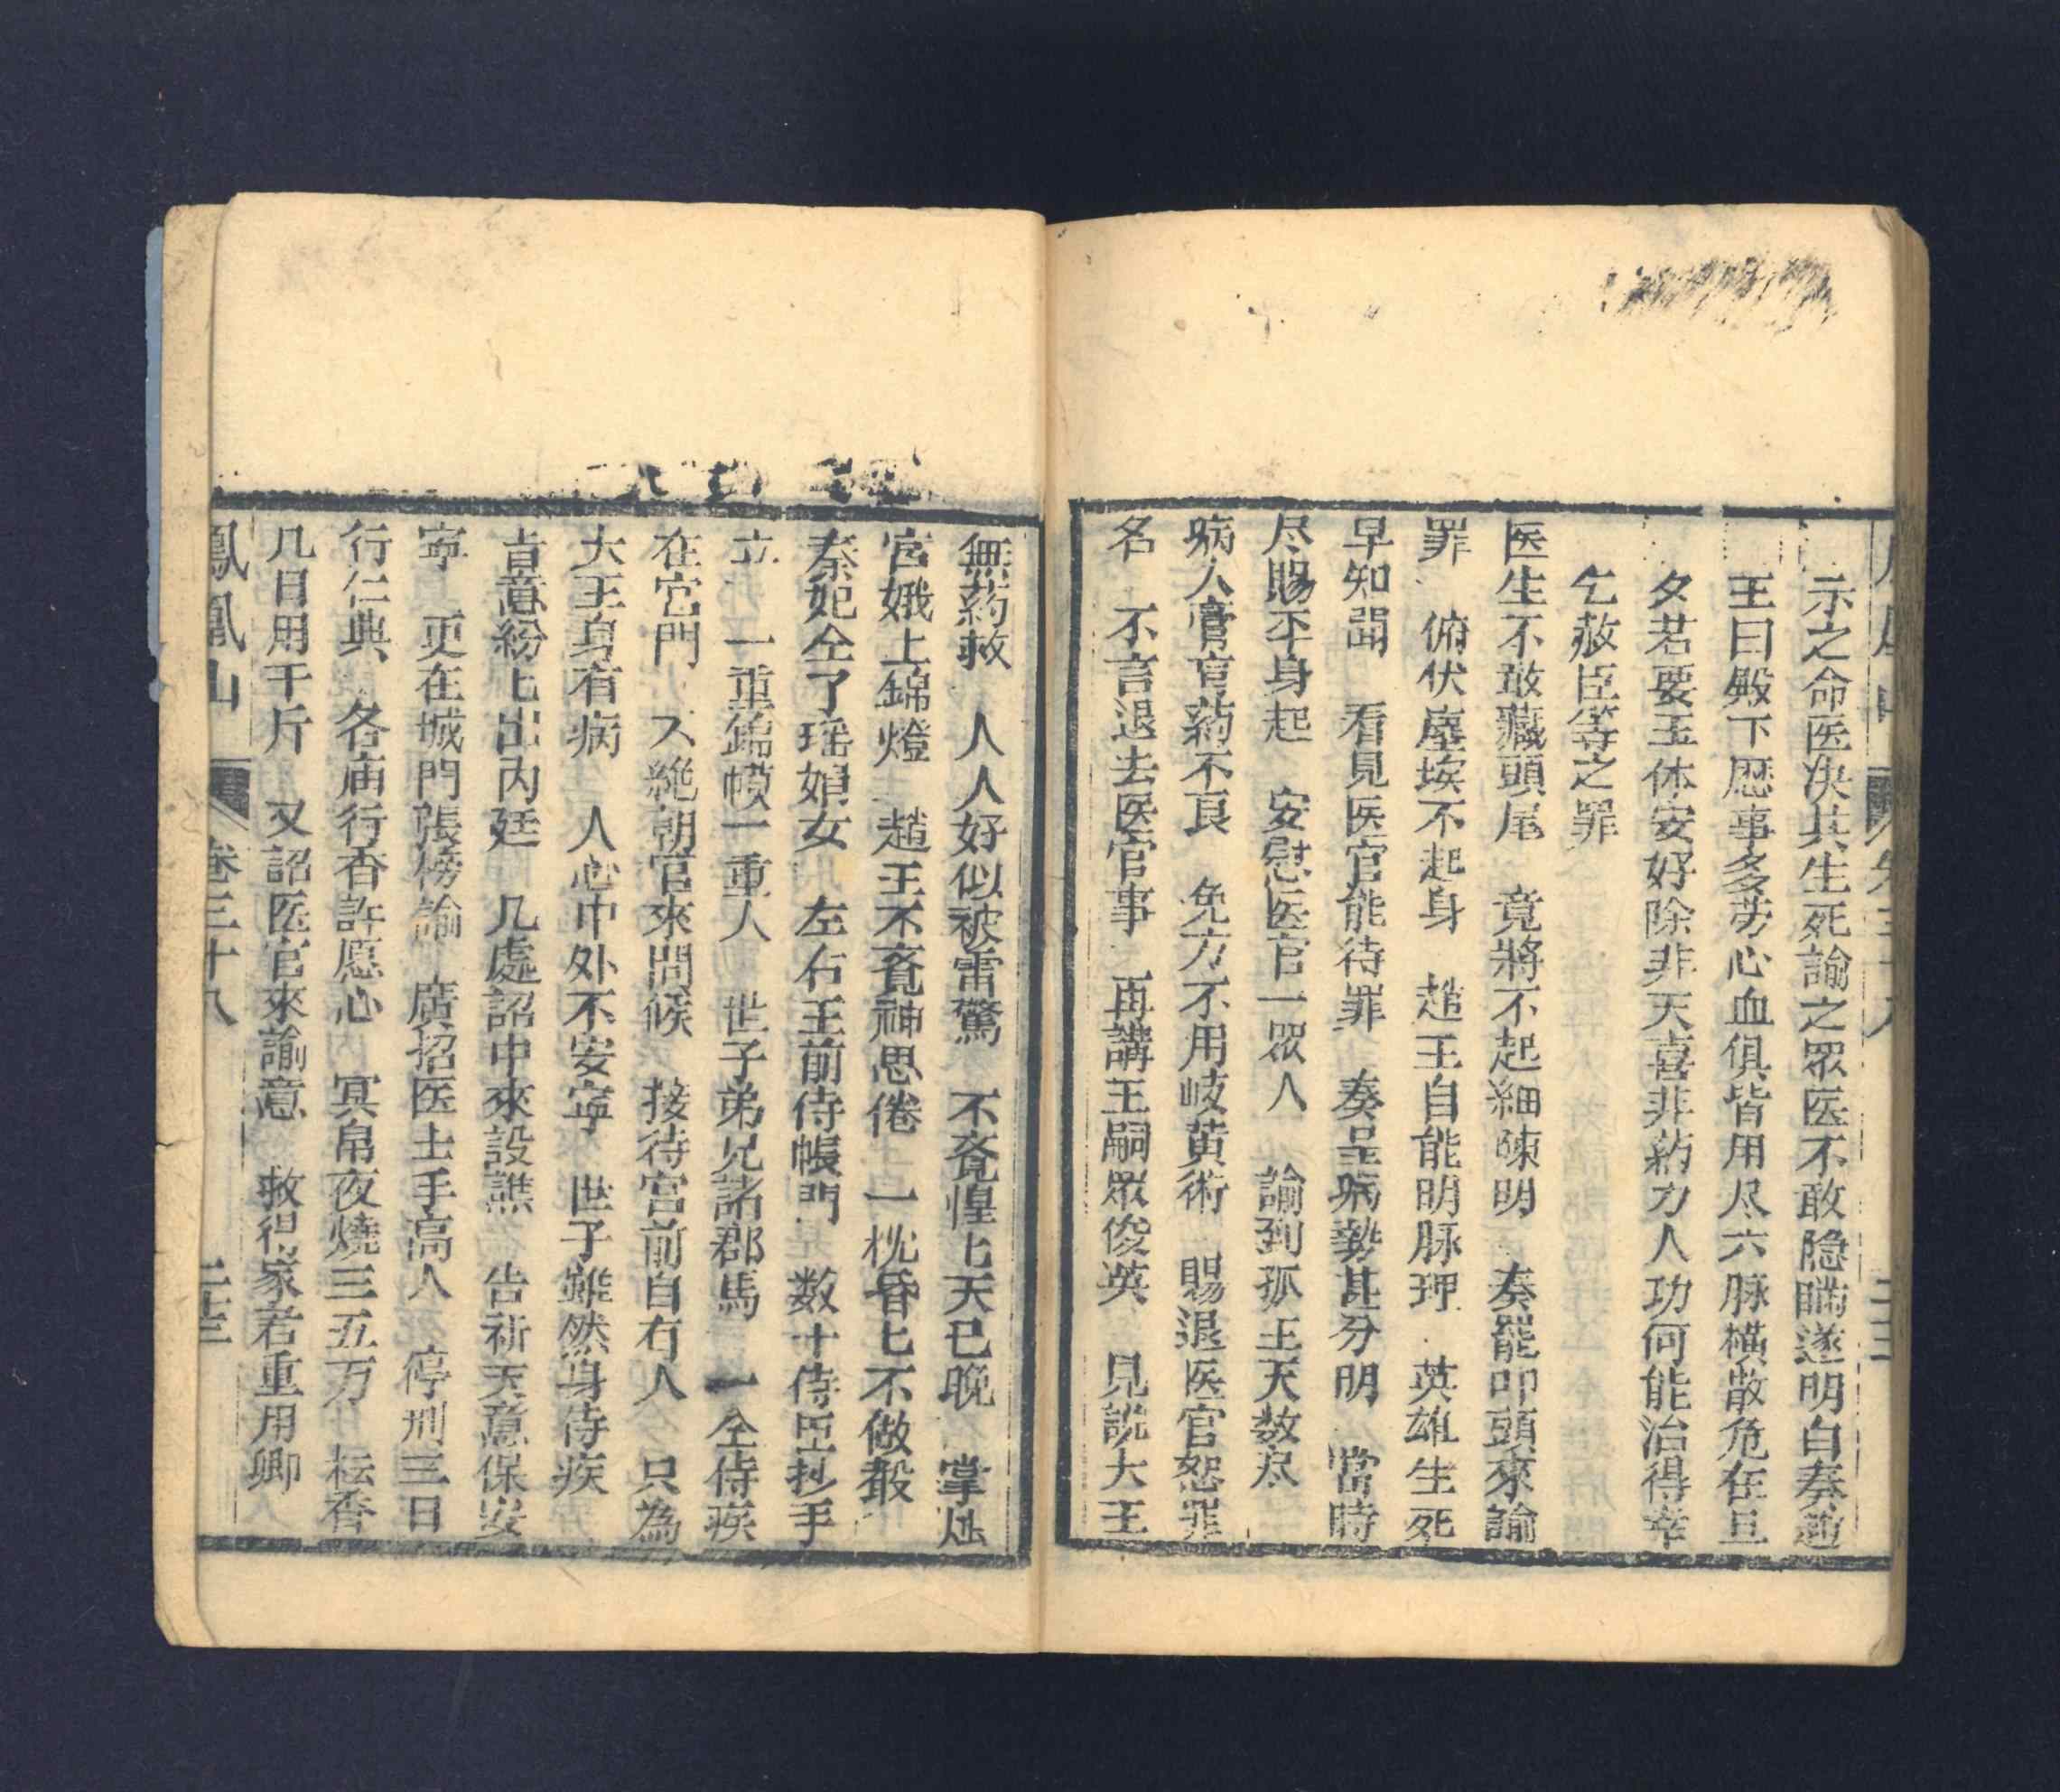 示之命医决其生死諭之眾医不敢隐瞞遂明白奏趙
王曰殿下歴事多劳心血俱皆用尽六脉橫散危在旦
夕若要玉体安好除非天喜非药力人功何能治得幸
乞赦臣等之罪
医生不敢藏頭尾 竟將不起細陳明 奏罷叩頭來諭
罪 俯伏塵埃不起身 趙王自能明脉理 英雄生死
早知聞 看見医官能待罪 奏呈病勢甚分明 當時
尽賜平身起 安慰医官一眾人 諭到孤王天数尽
病人膏肓药不良 免方不用岐黄術 賜退医官恕罪
名 不言退去医官事 再講王嗣眾俊英 見說大王
無药救 人人好似被雷驚 不竟惶匕天已晚 掌灿
宮娥上錦燈 趙王不竟神思倦 一枕昏匕不做声
秦妃仝了瑶娘女 左右王前侍帳門 数十侍臣抄手
立 一重錦幙一重人 世子弟兄諸郡馬 一仝侍疾
在宮門 又絶朝官來問候 接待宮前自有人 只為
大王身有病 人心中外不安寧 世子雖然身侍疾
旨意紛匕出內廷 几處詔中來設譙 告祈天意保安
寧 更在城門張榜諭 廣招医士手高人 停刑三日
行仁典 各庙行香許愿心 冥帛夜燒三五万 枟香
几日用千斤 又詔医官來諭意 救得家君重用卿
鳳凰山 卷三十八 二十三